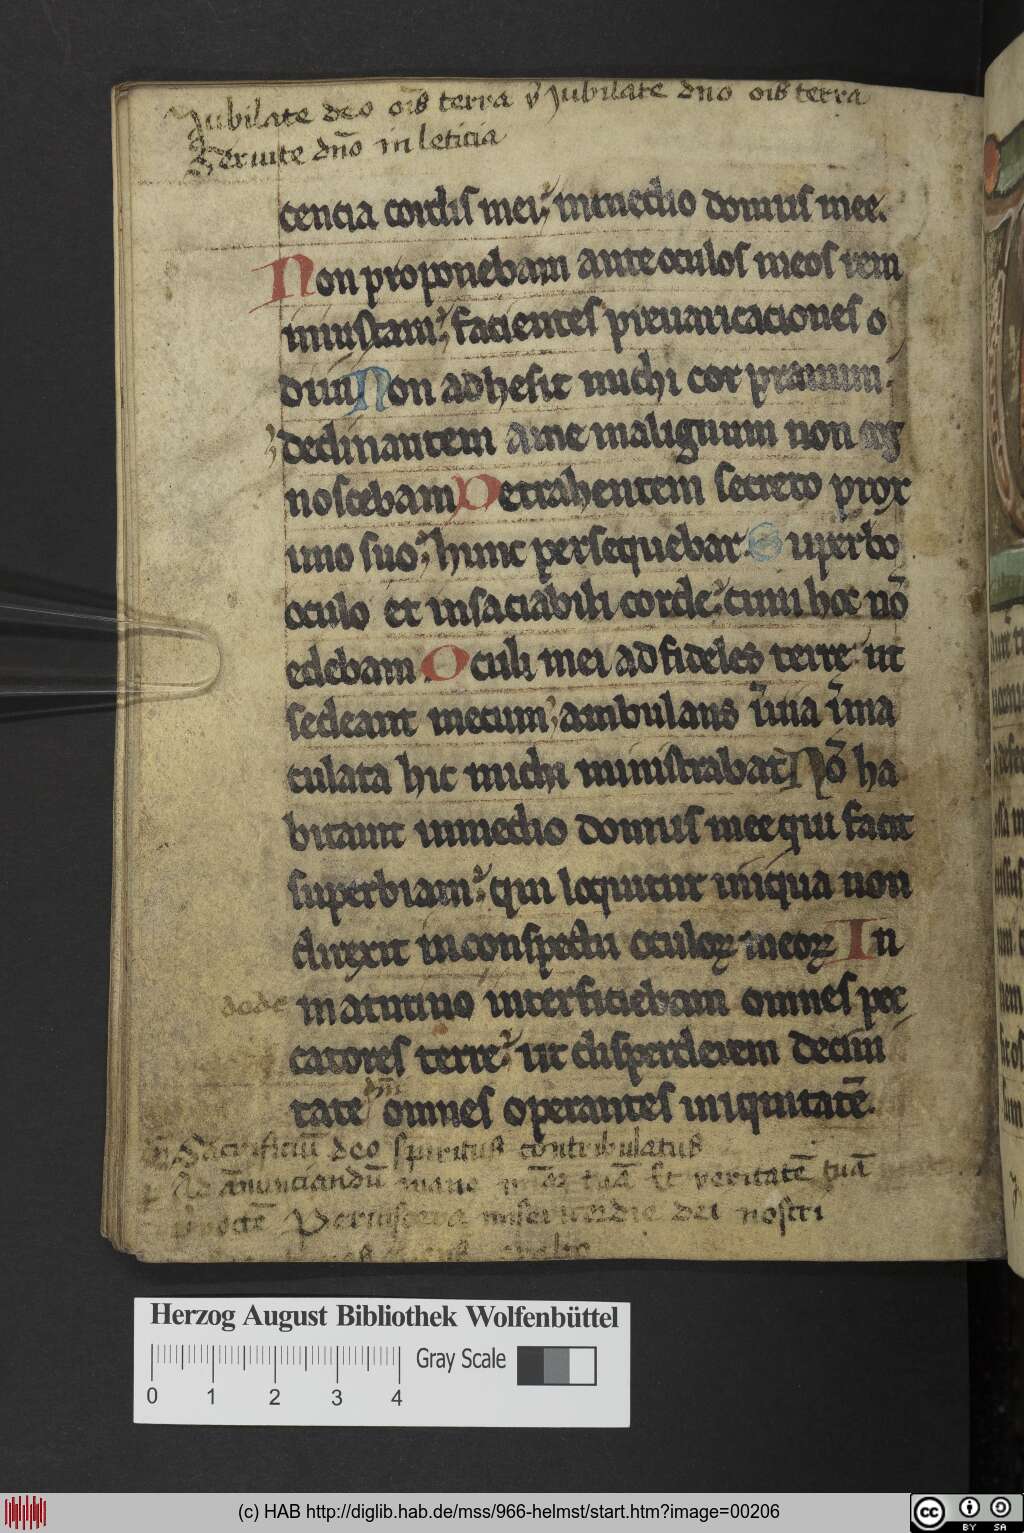 Jubilate deo ois terra ꝟ Jubilate dno ois terra
Seruite dño in leticia
cencia cordis mei; in medio domus mee.
Non proponebam ante oculos meos rem
iniustam; facientes preuaricaciones o
diui Non adhesit michi cor prauum.
declinantem a me malignum non cog
noscebam Detrahentem secreto prox
imo suo; hunc persequebar. Superbo
oculo et insaciabili corde; cum hoc nō
edebam. Oculi mei ad fideles terrę ut
sedeant mecum; ambulans ī uia īma
culata hic michi ministrabat Nō ha
bitauit in medio domus mee qui facit
superbiam; qui loquitur iniqua non
direxit in conspectu oculoꝝ meoꝝ In
dede
matutino interficiebam omnes pec
catores terre; ut disperderem deciui
tate dñi omnes operantes iniquitatē.
Sacrificiū deo spiritus contribulatus
Ad ānunciandū mane mīaꝫ tuā Et veritatē tuā
ꝑ noctē Per uiscera misericordie dei nostri